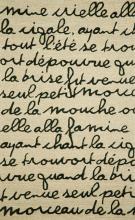 mine crielle alla
la cigale, ayant ch
tout l'été se trou
ort dépourvue qu
la brise fut venue
seul petit morce
de la mouche o
elle alla famine
ayant chant la cig
se trouvort dépo
rvue quand la bris
ent venue seul pet
morceau de la m